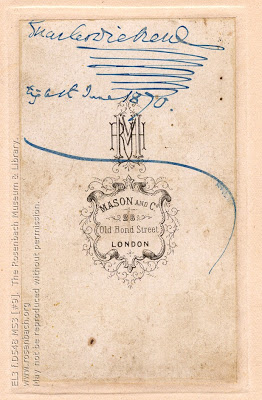 Charles Dickens
Eighth June 1870.
MASON AND Co
28
Old Bond Street
LONDON
EL3 f.D548 MS3 [#9]. The Rosenbach Museum & Library.
www.rosenbach.org
May not be reproduced without permission.